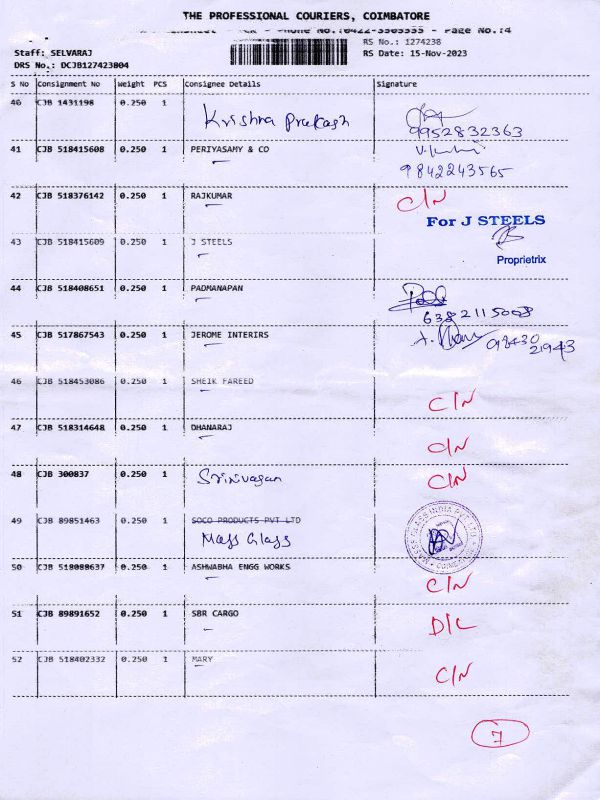 THE PROFESSIONAL COURIERS, COIMBATORE
Phone No.:0422-3505555 - Page No.:4
Staff: SELVARAJ
RS No.: 1274238
DRS No.: DCJB127423804
RS Date: 15-Nov-2023
S No Consignment No Weight PCS Consignee Details Signature
40 CJB 1431198 0.250 1 Krishna Prakash
9952832363
41 CJB 518415608 0.250 1 PERIYASAMY & CO
9842243565
42 CJB 518376142 0.250 1 RAJKUMAR C/N
For J STEELS
43 CJB 518415609 0.250 1 J STEELS
Proprietrix
44 CJB 518408651 0.250 1 PADMANAPAN
6382115008
45 CJB 517867543 0.250 1 JEROME INTERIRS
98430
21943
46 CJB 518453086 0.250 1 SHEIK FAREED
C/N
47 CJB 518314648 0.250 1 DHANARAJ
C/N
48 CJB 300837 0.250 1 Srinivasan C/N
49 CJB 89851463 0.250 1 SOCO PRODUCTS PVT LTD
Mass Glass
MASS GLASS INDIA PVT LTD
COIMBATORE
50 CJB 518088637 0.250 1 ASHWABHA ENGG WORKS
C/N
51 CJB 89891652 0.250 1 SBR CARGO
D/L
52 CJB 518402332 0.250 1 MARY
C/N
7